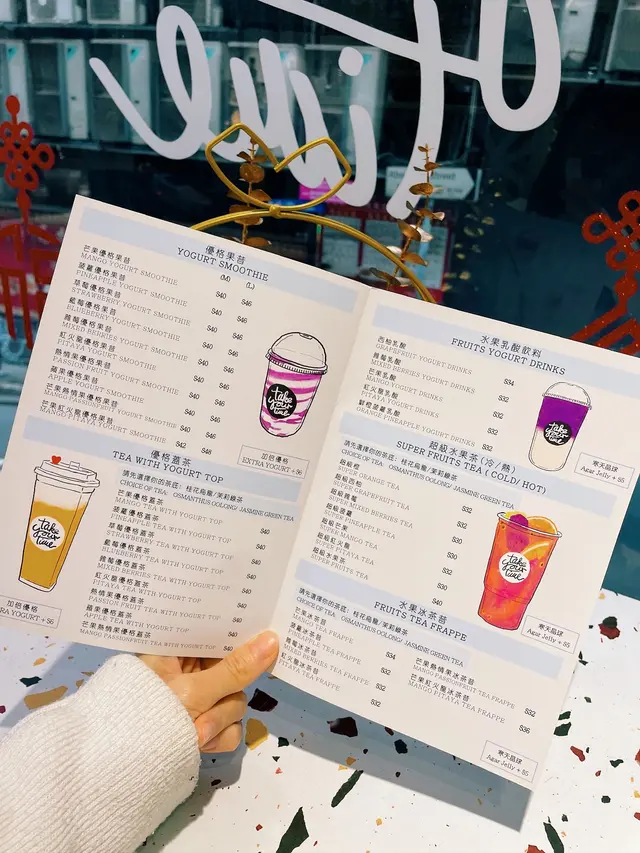 優格果昔
YOGURT SMOOTHIE
(M) (L)
芒果優格果昔
MANGO YOGURT SMOOTHIE $40 $46
菠蘿優格果昔
PINEAPPLE YOGURT SMOOTHIE $40 $46
草莓優格果昔
STRAWBERRY YOGURT SMOOTHIE $40 $46
藍莓優格果昔
BLUEBERRY YOGURT SMOOTHIE $40 $46
雜莓優格果昔
MIXED BERRIES YOGURT SMOOTHIE $40 $46
紅火龍優格果昔
PITAYA YOGURT SMOOTHIE $40 $46
熱情果優格果昔
PASSION FRUIT YOGURT SMOOTHIE $40 $46
蘋果優格果昔
APPLE YOGURT SMOOTHIE $40 $46
芒果熱情果優格果昔
MANGO PASSIONFRUIT YOGURT SMOOTHIE $40 $46
芒果紅火龍優格果昔
MANGO PITAYA YOGURT SMOOTHIE $42 $48
take your time
加倍優格
EXTRA YOGURT +$6
優格蓋茶
TEA WITH YOGURT TOP
請先選擇你的茶底: 桂花烏龍/茉莉綠茶
CHOICE OF TEA: OSMANTHUS OOLONG/ JASMINE GREEN TEA
芒果優格蓋茶
MANGO TEA WITH YOGURT TOP $40
菠蘿優格蓋茶
PINEAPPLE TEA WITH YOGURT TOP $40
草莓優格蓋茶
STRAWBERRY TEA WITH YOGURT TOP $40
藍莓優格蓋茶
BLUEBERRY TEA WITH YOGURT TOP $40
雜莓優格蓋茶
MIXED BERRIES TEA WITH YOGURT TOP $40
紅火龍優格蓋茶
PITAYA TEA WITH YOGURT TOP $40
熱情果優格蓋茶
PASSION FRUIT TEA WITH YOGURT TOP $40
蘋果優格蓋茶
APPLE TEA WITH YOGURT TOP $40
芒果熱情果優格蓋茶
MANGO PASSION FRUIT TEA WITH YOGURT TOP $40
take your time
加倍優格
YOGURT +$6
水果乳酸飲料
FRUITS YOGURT DRINKS
西柚乳酸
GRAPEFRUIT YOGURT DRINKS $34
雜莓乳酸
MIXED BERRIES YOGURT DRINKS $32
芒果乳酸
MANGO YOGURT DRINKS $32
紅火龍乳酸
PITAYA YOGURT DRINKS $32
鮮橙菠蘿乳酸
ORANGE PINEAPPLE YOGURT DRINKS $32
take your time
寒天晶球
Agar Jelly + $5
超級水果茶(冷/熱)
SUPER FRUITS TEA (COLD/HOT)
請先選擇你的茶底: 桂花烏龍/茉莉綠茶
CHOICE OF TEA: OSMANTHUS OOLONG/ JASMINE GREEN TEA
超級橙
SUPER ORANGE TEA $32
超級西柚
SUPER GRAPEFRUIT TEA $32
超級雜莓
SUPER MIXED BERRIES TEA $32
超級菠蘿
SUPER PINEAPPLE TEA $30
超級芒果
SUPER MANGO TEA $30
超級紅火龍
SUPER PITAYA TEA $30
超級水果茶
SUPER FRUITS TEA $40
take your time
寒天晶球
Agar Jelly + $5
水果冰茶昔
FRUITS TEA FRAPPE
請先選擇你的茶底: 桂花烏龍/茉莉綠茶
CHOICE OF TEA: OSMANTHUS OOLONG/ JASMINE GREEN TEA
芒果冰茶昔
MANGO TEA FRAPPE $34
菠蘿冰茶昔
PINEAPPLE TEA FRAPPE $32
雜莓冰茶昔
MIXED BERRIES TEA FRAPPE $32
紅火龍冰茶昔
PITAYA TEA FRAPPE $32
芒果熱情果冰茶昔
MANGO PASSIONFRUIT TEA FRAPPE $32
芒果紅火龍冰茶昔
MANGO PITAYA TEA FRAPPE $36
寒天晶球
Agar Jelly + $5